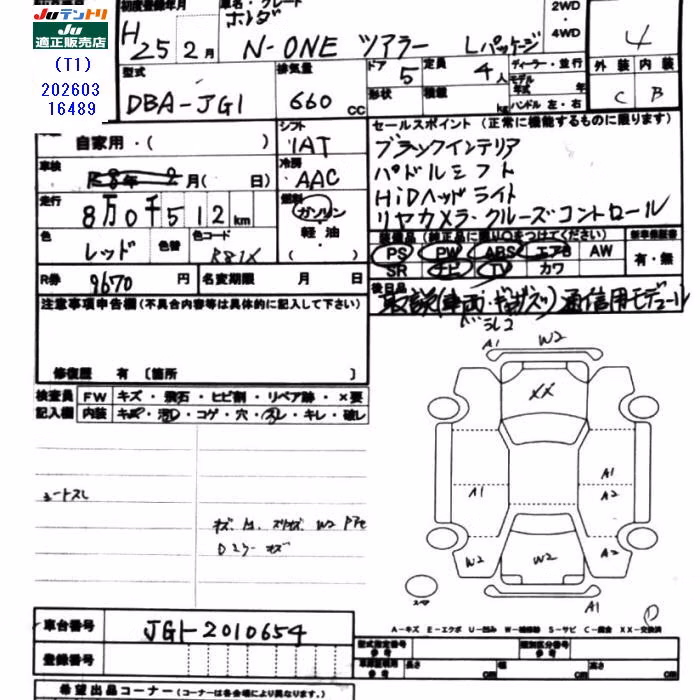 JUテントリ
JU
適正販売店
(T1)
202603
16489
初度登録年月
車名・グレード
ホンダ
2WD
・
4WD
H 25 2月
N-ONE ツアラー Lパッケージ
4
型式
排気量
ドア
5
定員
4人
ディーラー・並行
モデル
年式
年
外装
内装
DBA-JG1
660 cc
形状
積載
kg
ハンドル 左・右
C
B
自家用・( )
シフト
IAT
セールスポイント (正常に機能するものに限ります)
ブラックインテリア
パドルシフト
HiDヘッドライト
リヤカメラ・クルーズコントロール
車検
月( 日)
冷房
AAC
走行
8万0千512km
燃料
ガソリン
軽油・
( )
色
レッド
色替
色コード
R81X
装備品 (純正品に限り○をつけてください)
新車保証書
PS PW ABS エアB AW
SR ナビ TV カワ
有・無
R券
9670円
名変期限
月 日
後日品
取説(車両・ナビ) 通信用モデュール
注意事項申告欄 (不具合内容等は具体的に記入して下さい)
修復歴 有 〔箇所 〕
検査員
記入欄
FW
キズ・飛石・ヒビ割・リペア跡・×要
内装
キズ・汚レ・コゲ・穴・スレ・キレ・破レ
シートスレ
A1
W2
XX
A1
A1
A2
W2
W2
A2
A1
A-キズ E-エクボ U-凹み W-補修跡 S-サビ C-腐食 XX-交換済
車台番号
JG1-2010654
登録番号
型式指定番号
参考
類別区分番号
参考
車庫証明用
参考
長さ
cm
幅
cm
高さ
cm
希望出品コーナー (コーナーは各会場により異なります。)